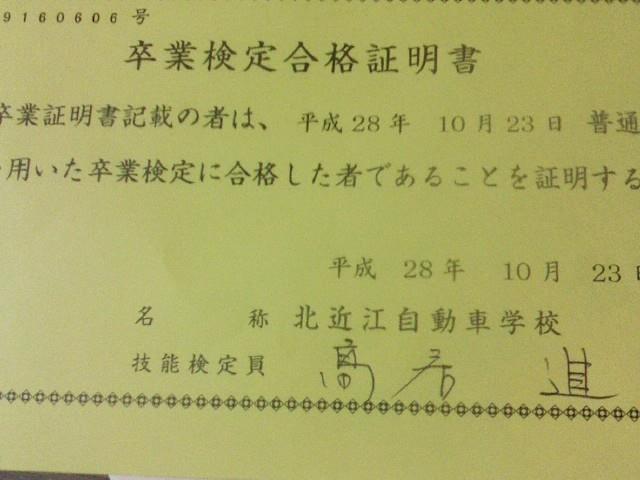 9160606号
卒業検定合格証明書
卒業証明書記載の者は、 平成28年 10月23日 普通
用いた卒業検定に合格した者であることを証明する
平成 28年 10月 23日
名 称 北近江自動車学校
技能検定員 高居 進